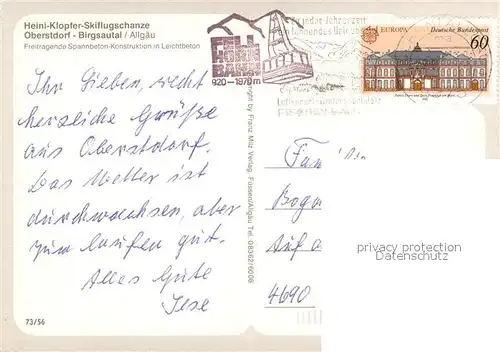 Heini-Klopfer-Skiflugschanze
Oberstdorf - Birgsautal / Allgäu
Freitragende Spannbeton-Konstruktion in Leichtbeton
Ihr Lieben, recht
herzliche Grüße
aus Oberstdorf.
Das Wetter ist
durchwachsen, aber
zum laufen gut.
Alles Gute
Ilse
73/56
Copyright by Franz Milz Verlag, Füssen/Allgäu Tel. 08362/6008
FELL
HORN
BAHN
920-1970m
EUROPA
Deutsche Bundespost
60
Fam
Boga
Auf d
4690
privacy protection
Datenschutz